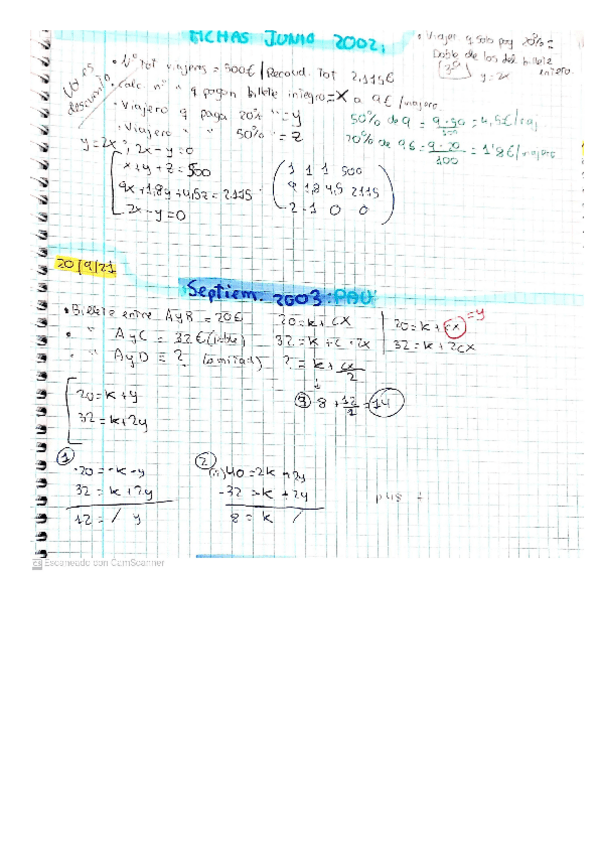 FICHAS JUNIO 2002:
• Viajer q solo pag 20% =
Doble de los del billete
entero.
(3º) y=2x
• Nº tot viajeros = 500€/Recaud. Tot 2.115€
descuento
• calc. nº " q pagan billete integro = X a 9€/viajero
• Viajero q paga 20% " = y
• Viajero " " 50% " = z
50% de 9 = 9·50/100 = 4,5€/viaj
20% de 9 = 9·20/100 = 1'8€/viajero
y=2x ; 2x-y=0
x+y+z=500
9x+1,8y+4,5z=2115
2x-y=0
1 1 1 500
9 1,8 4,5 2115
2 -1 0 0
20/9/21
Septiem. 2003: PAU
• Billete entre A y B = 20€
20=k+cx
20=k+cx =y
• " A y C = 32€ (doble)
32=k+c·2x
32=k+2cx
• " A y D = ? (a mitad)
? = k+cx/2
20=k+y
32=k+2y
③ 8+12/2=14
①
-20=-k-y
32=k+2y
12=/ y
②
40=2k+2y
-32=k+2y
8=k /
Escaneado con CamScanner